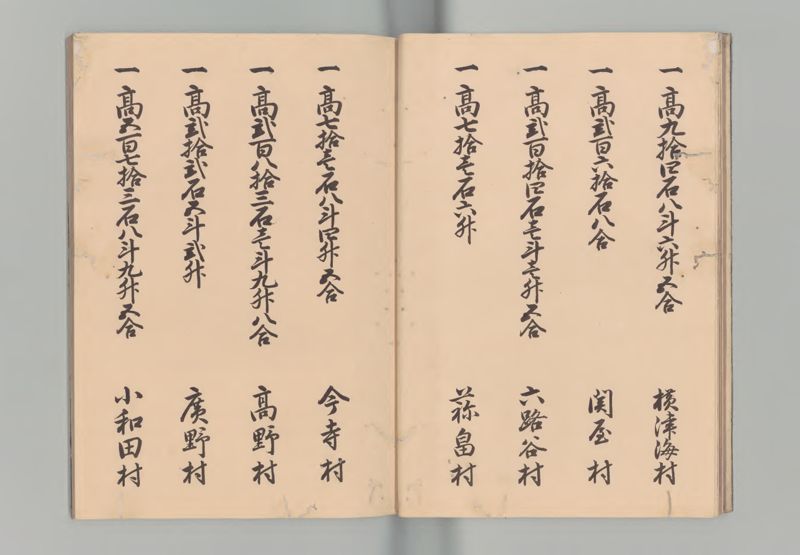 一 高九拾四石八斗六升五合 横津海村
一 高弐百六拾石八合 関屋村
一 高弐百拾四石壱斗壱升五合 六路谷村
一 高七拾壱石六升 蒜畠村
一 高七拾壱石八斗四升五合 今寺村
一 高弐百八拾三石壱斗九升八合 高野村
一 高弐拾弐石五斗弐升 廣野村
一 高五百七拾三石八斗九升五合 小和田村